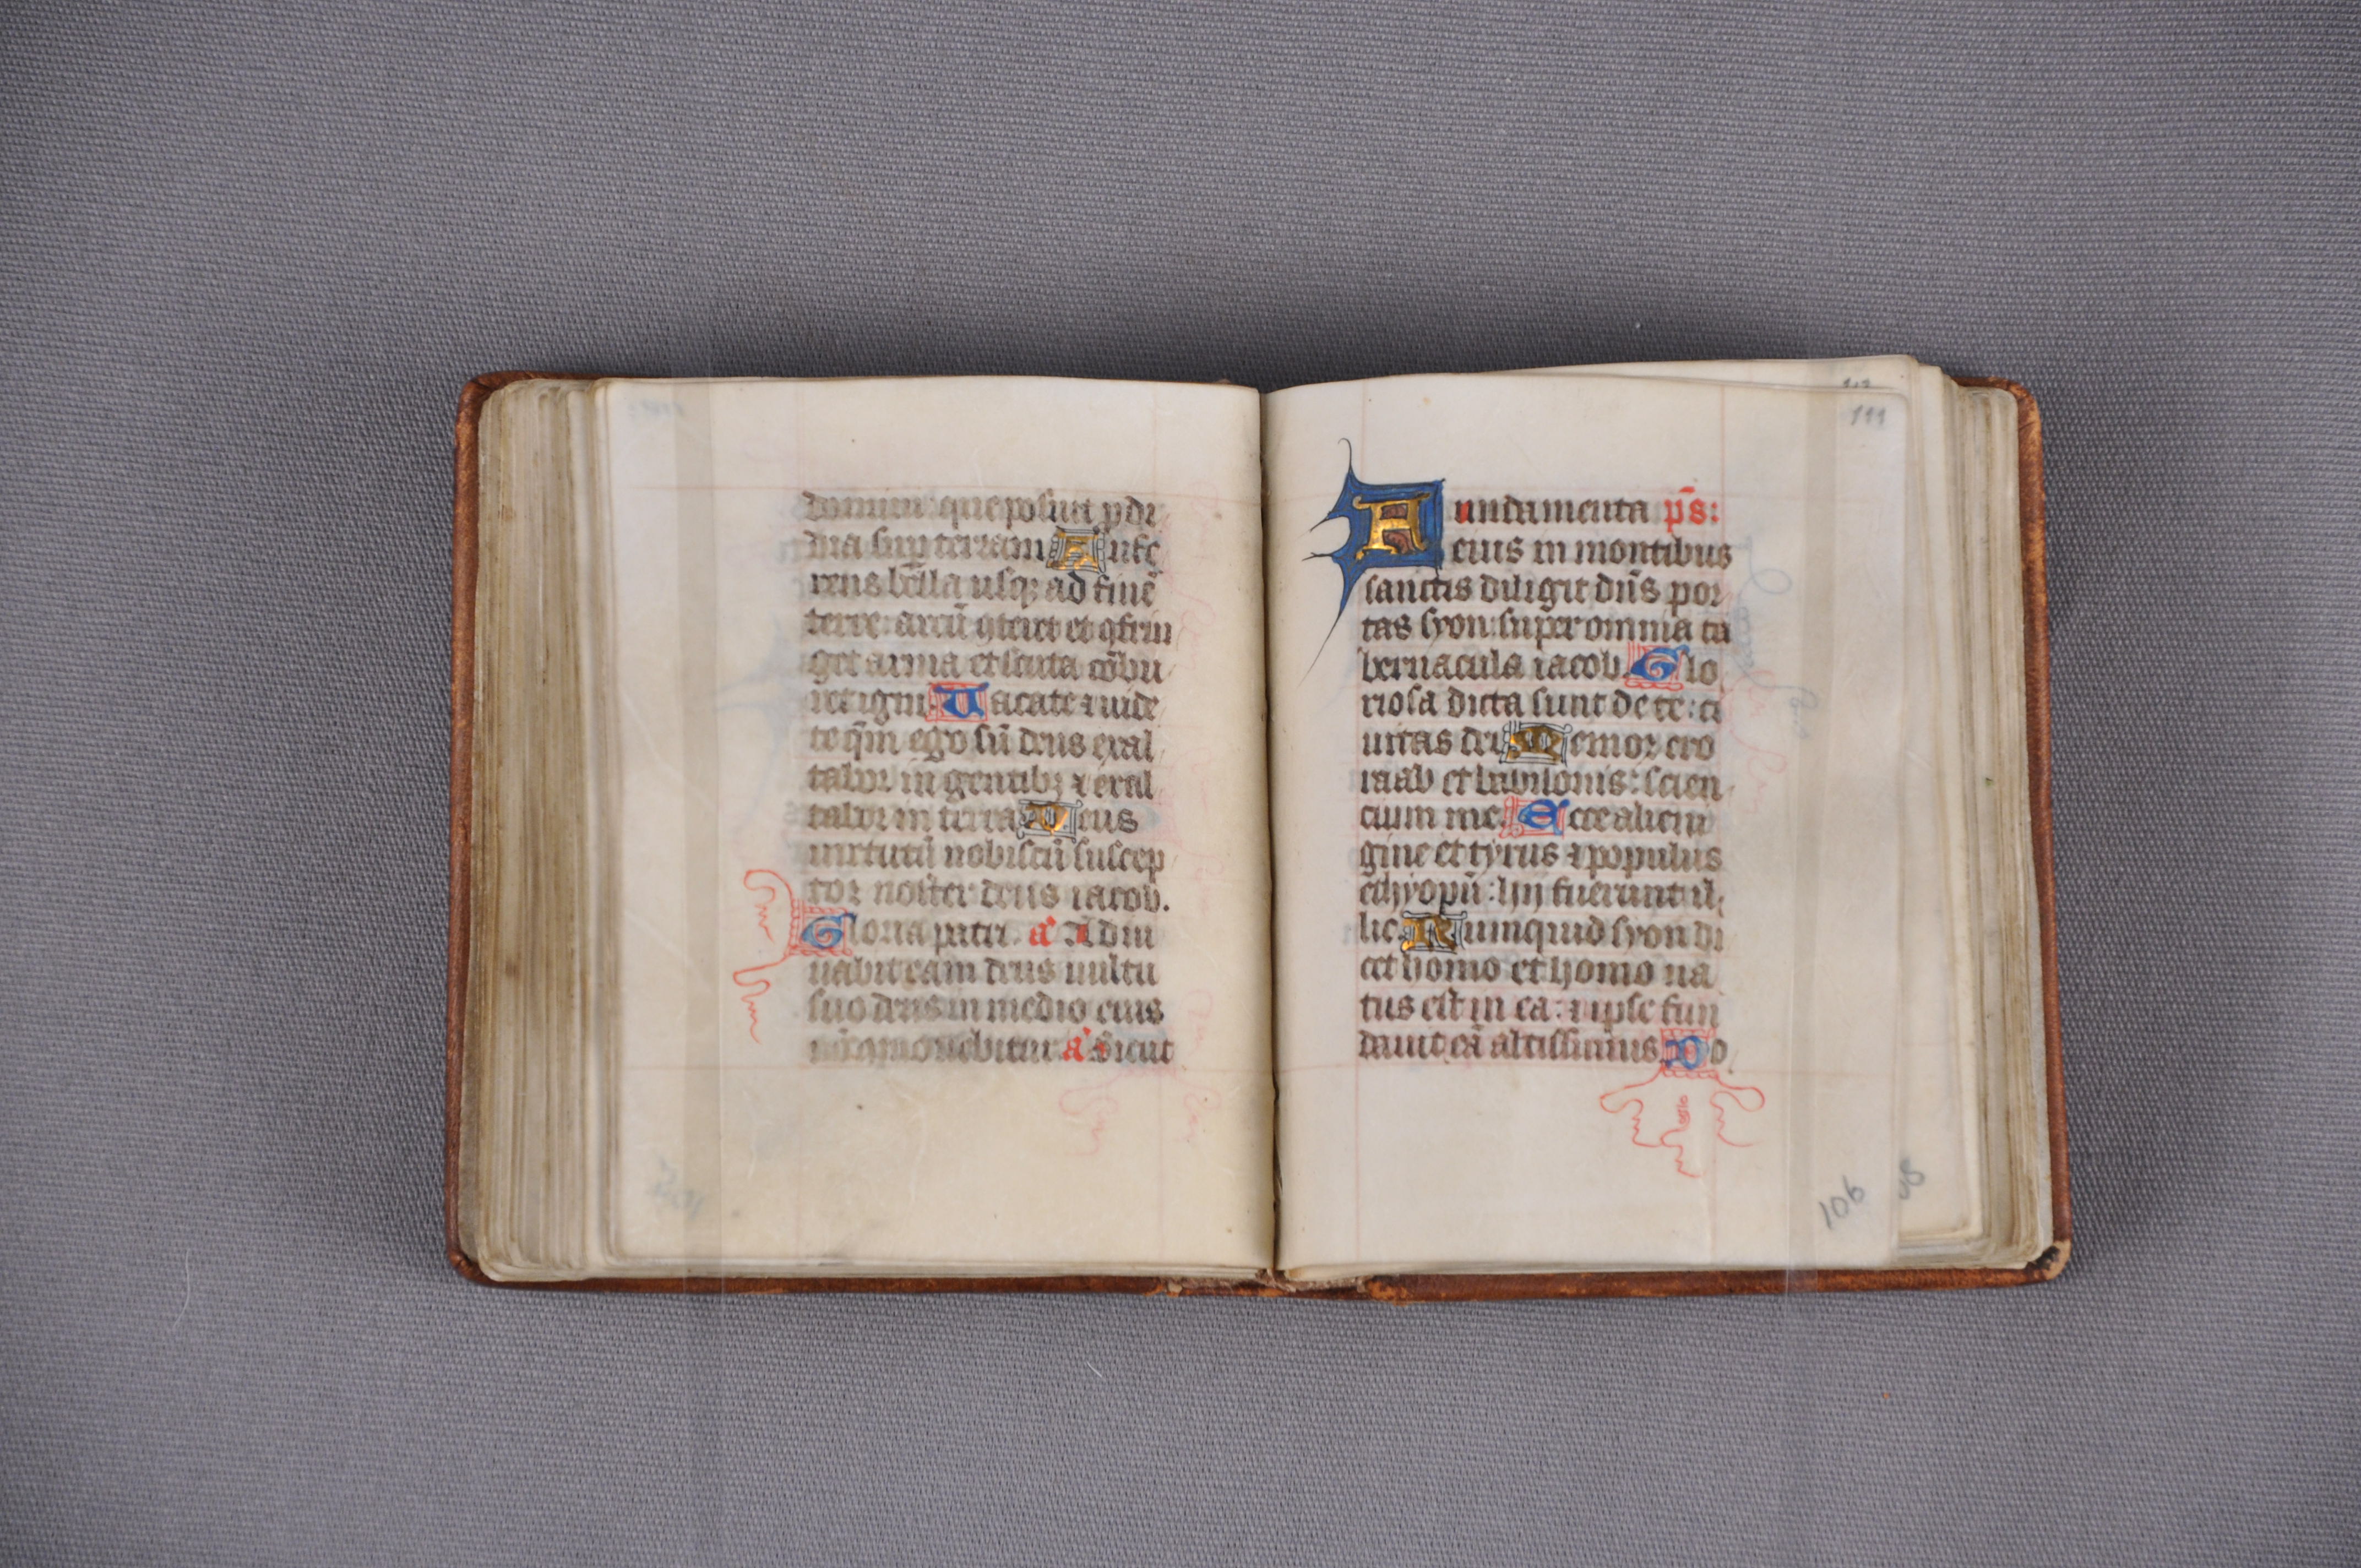 dominu que posuit pdi
dia sup terram Aufe
rens bella usq; ad finē
terre: arcū ɋteret et ɋfrin
get arma et scuta cōbu
ret igni. Uacate ⁊ uide
te qm̄ ego sū deus exal
tabor in gentibꝫ ⁊ exal
tabor in terra Deus
uirtutū nobiscū suscep
tor noster deus iacob.
Gloria patri. a Adiu
uabit eam deus uultu
suo deus in medio eius
nō ɋmouebitur a Sicut
111
Fundamenta ps:
eius in montibus
sanctis diligit dn̄s por
tas syon: super omnia ta
bernacula iacob. Glo
riosa dicta sunt de te: ci
uitas dei. Memor ero
raab et babilonis: scien
cium me. Ecce alieni
gine et tyrus ⁊ populus
ethyopū: hij fuerunt il
lic. Numquid syon di
cet homo et homo na
tus est in ea: ⁊ ipse fun
dauit eā altissimus Do
106